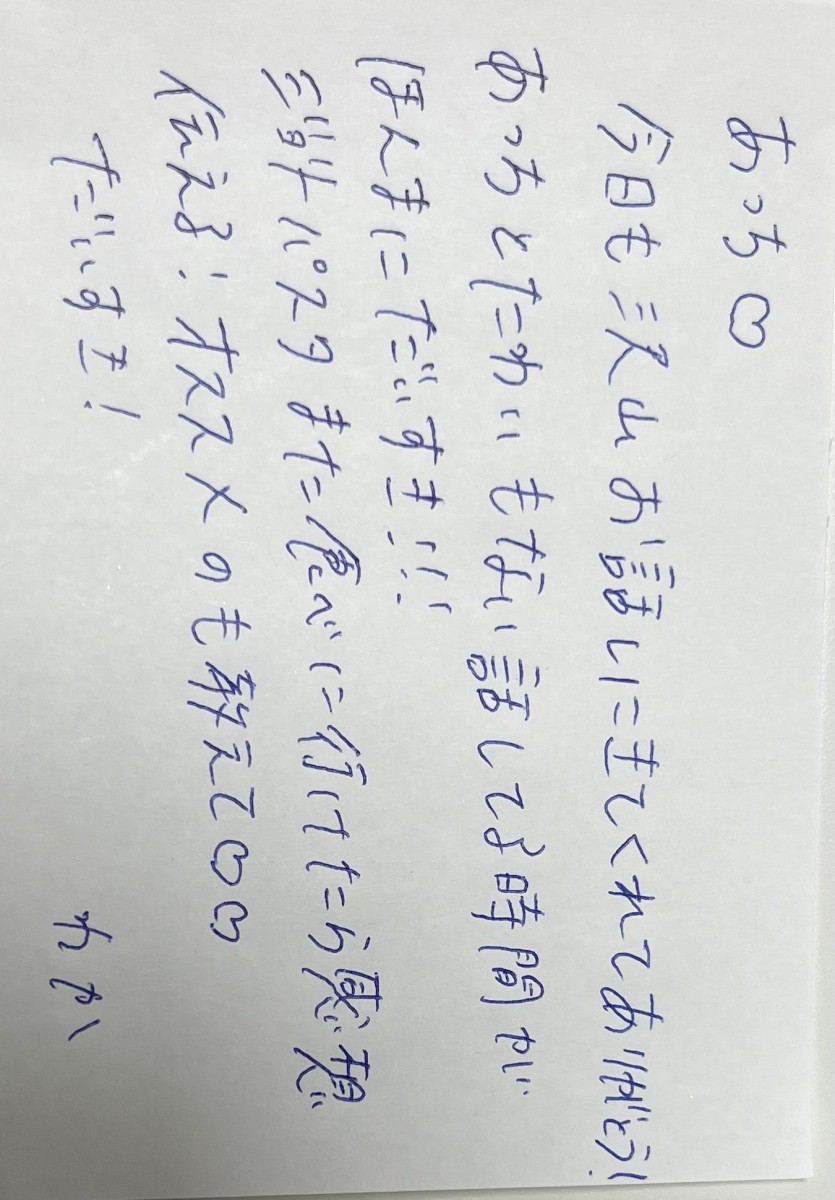 あっち♡
今日も沢山お話しにきてくれてありがとう!
あっちとたわいもない話してる時間が
ほんまにだいすき!!!
パスタまた食べに行けたら感想
伝える!オススメのも教えて♡♡
だいすき!
わか